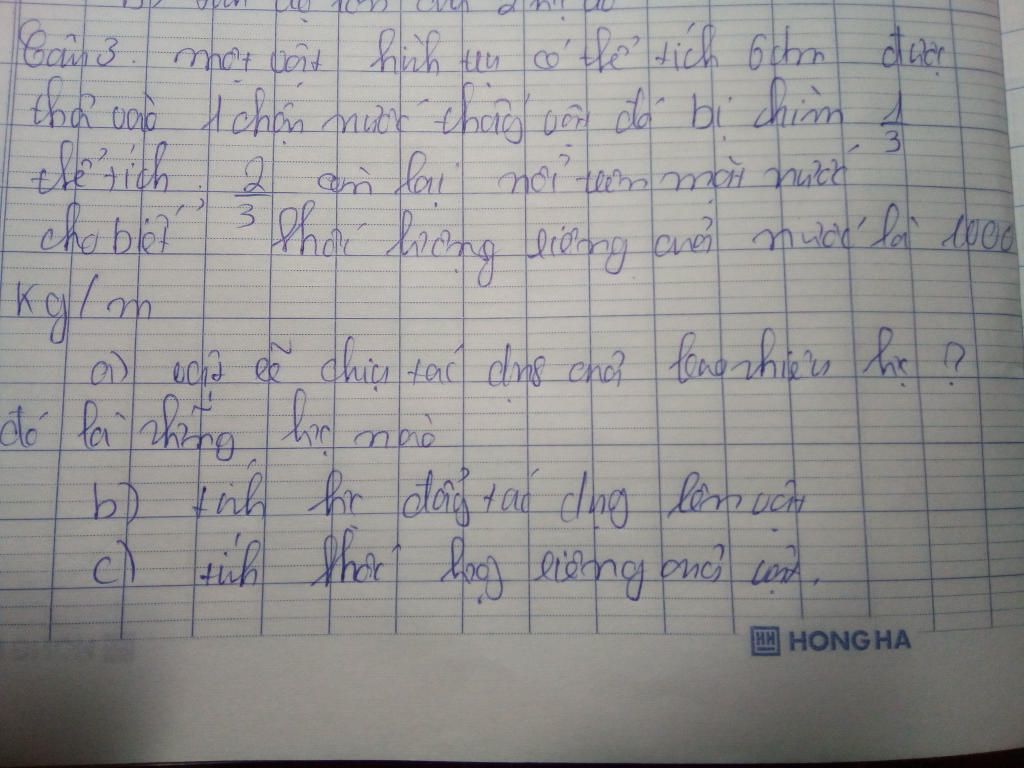 Câu 3. một vật hình trụ có thể tích 6dm được
thả vào 1 chậu nước thấy vật đó bị chìm 1/3
thể tích. 2/3 còn lại nổi trên mặt nước.
cho biết khối lượng riêng của nước là 1000
kg/m
a) vật sẽ chịu tác dụng của bao nhiêu lực ?
đó là những lực nào
b) tính lực đẩy tác dụng lên vật
c) tính khối lượng riêng của vật.
HONG HA